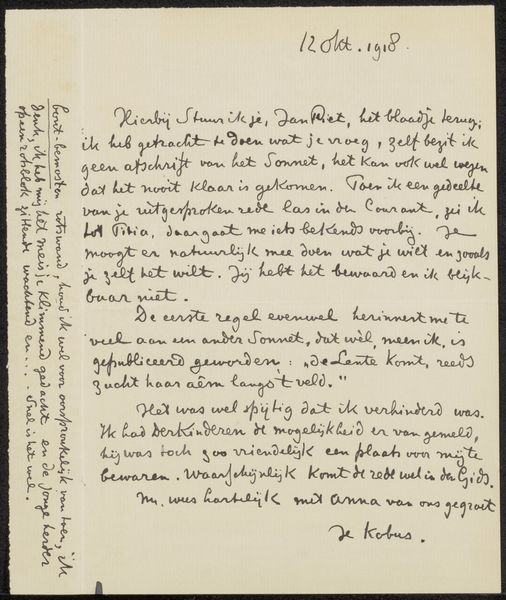 12 Okt. 1918.
Hierbij Stuur ik je, Jan Piet, het blaadje terug;
ik heb getracht te doen wat je vroeg, zelf bezit ik
geen afschrift van het Sonnet, het kan ook wel wezen
dat het nooit klaar is gekomen. Toen ik een gedeelte
van je uitgesproken rede las in den Courant, zei ik
tot Titia, daar gaat me iets bekends voorbij. Je
moogt er natuurlijk mee doen wat je wilt en zooals
je zelf het wilt. Jij hebt het bewaard en ik blijk-
baar niet.
De eerste regel evenwel herinnert me te
veel aan een ander Sonnet, dat wèl, meen ik, is
gepubliceerd geworden: "de Lente komt, reeds
zucht haar aêm langs 't veld."
Het was wel spijtig dat ik verhinderd was.
Ik had Derkinderen de mogelijkheid er van gemeld,
hij was toch zoo vriendelijk een plaats voor mij te
bewaren. Waarschijnlijk komt de rede wel in den Gids.
Nu, wees hartelijk met Anna van ons gegroet
Je Kobus.
bont-bemosten rotswand, houd ik wel voor oorspronkelijk van toen, ik
denk, ik heb mij het meisje klimmend gedacht en de jonge herder
op een rotsblok zittende wachtend en... Snel is het wel.